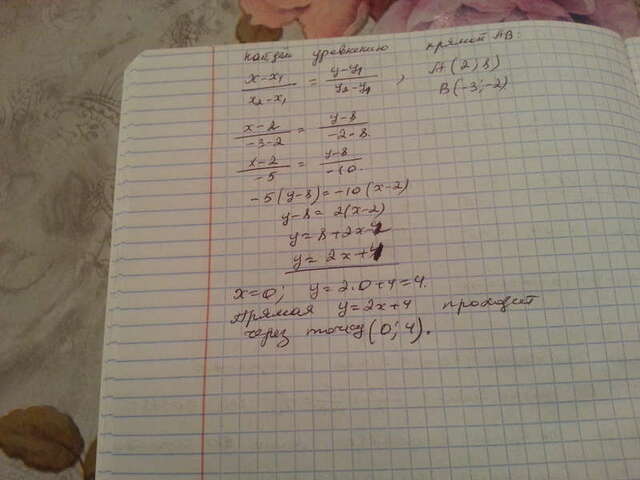 найдем уравнению прямой AB:
x-x₁/x₂-x₁ = y-y₁/y₂-y₁, A(2; 8)
B(-3; -2)
x-2/-3-2 = y-8/-2-8
x-2/-5 = y-8/-10.
-5(y-8)=-10(x-2)
y-8=2(x-2)
y=8+2x-4
y=2x+4
x=0; y=2·0+4=4.
Прямая y=2x+4 проходит
через точку (0; 4).